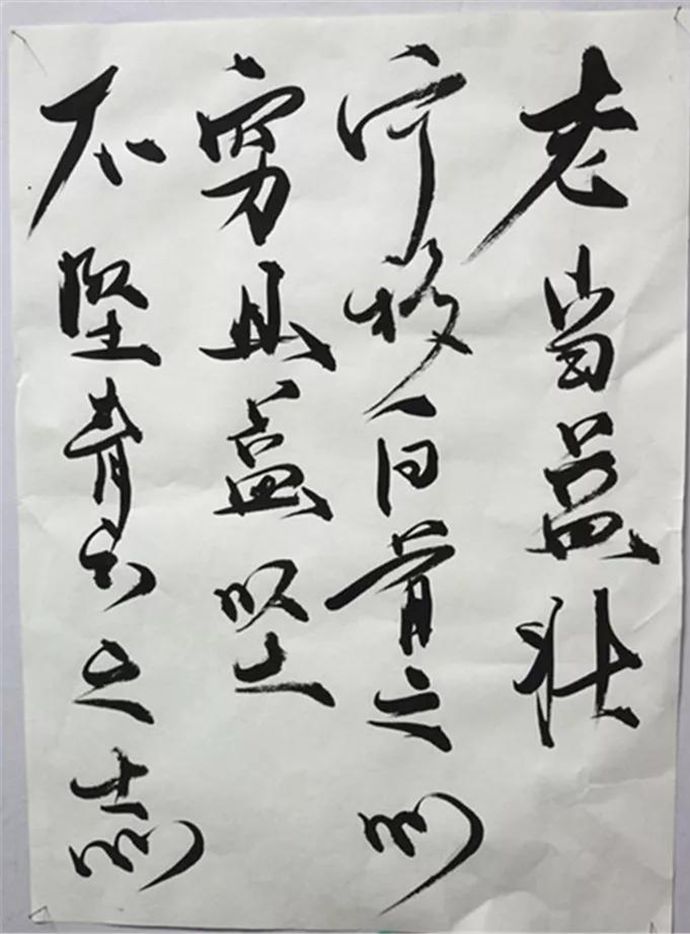 老当益壮
宁移白首之心
穷且益坚
不坠青云之志